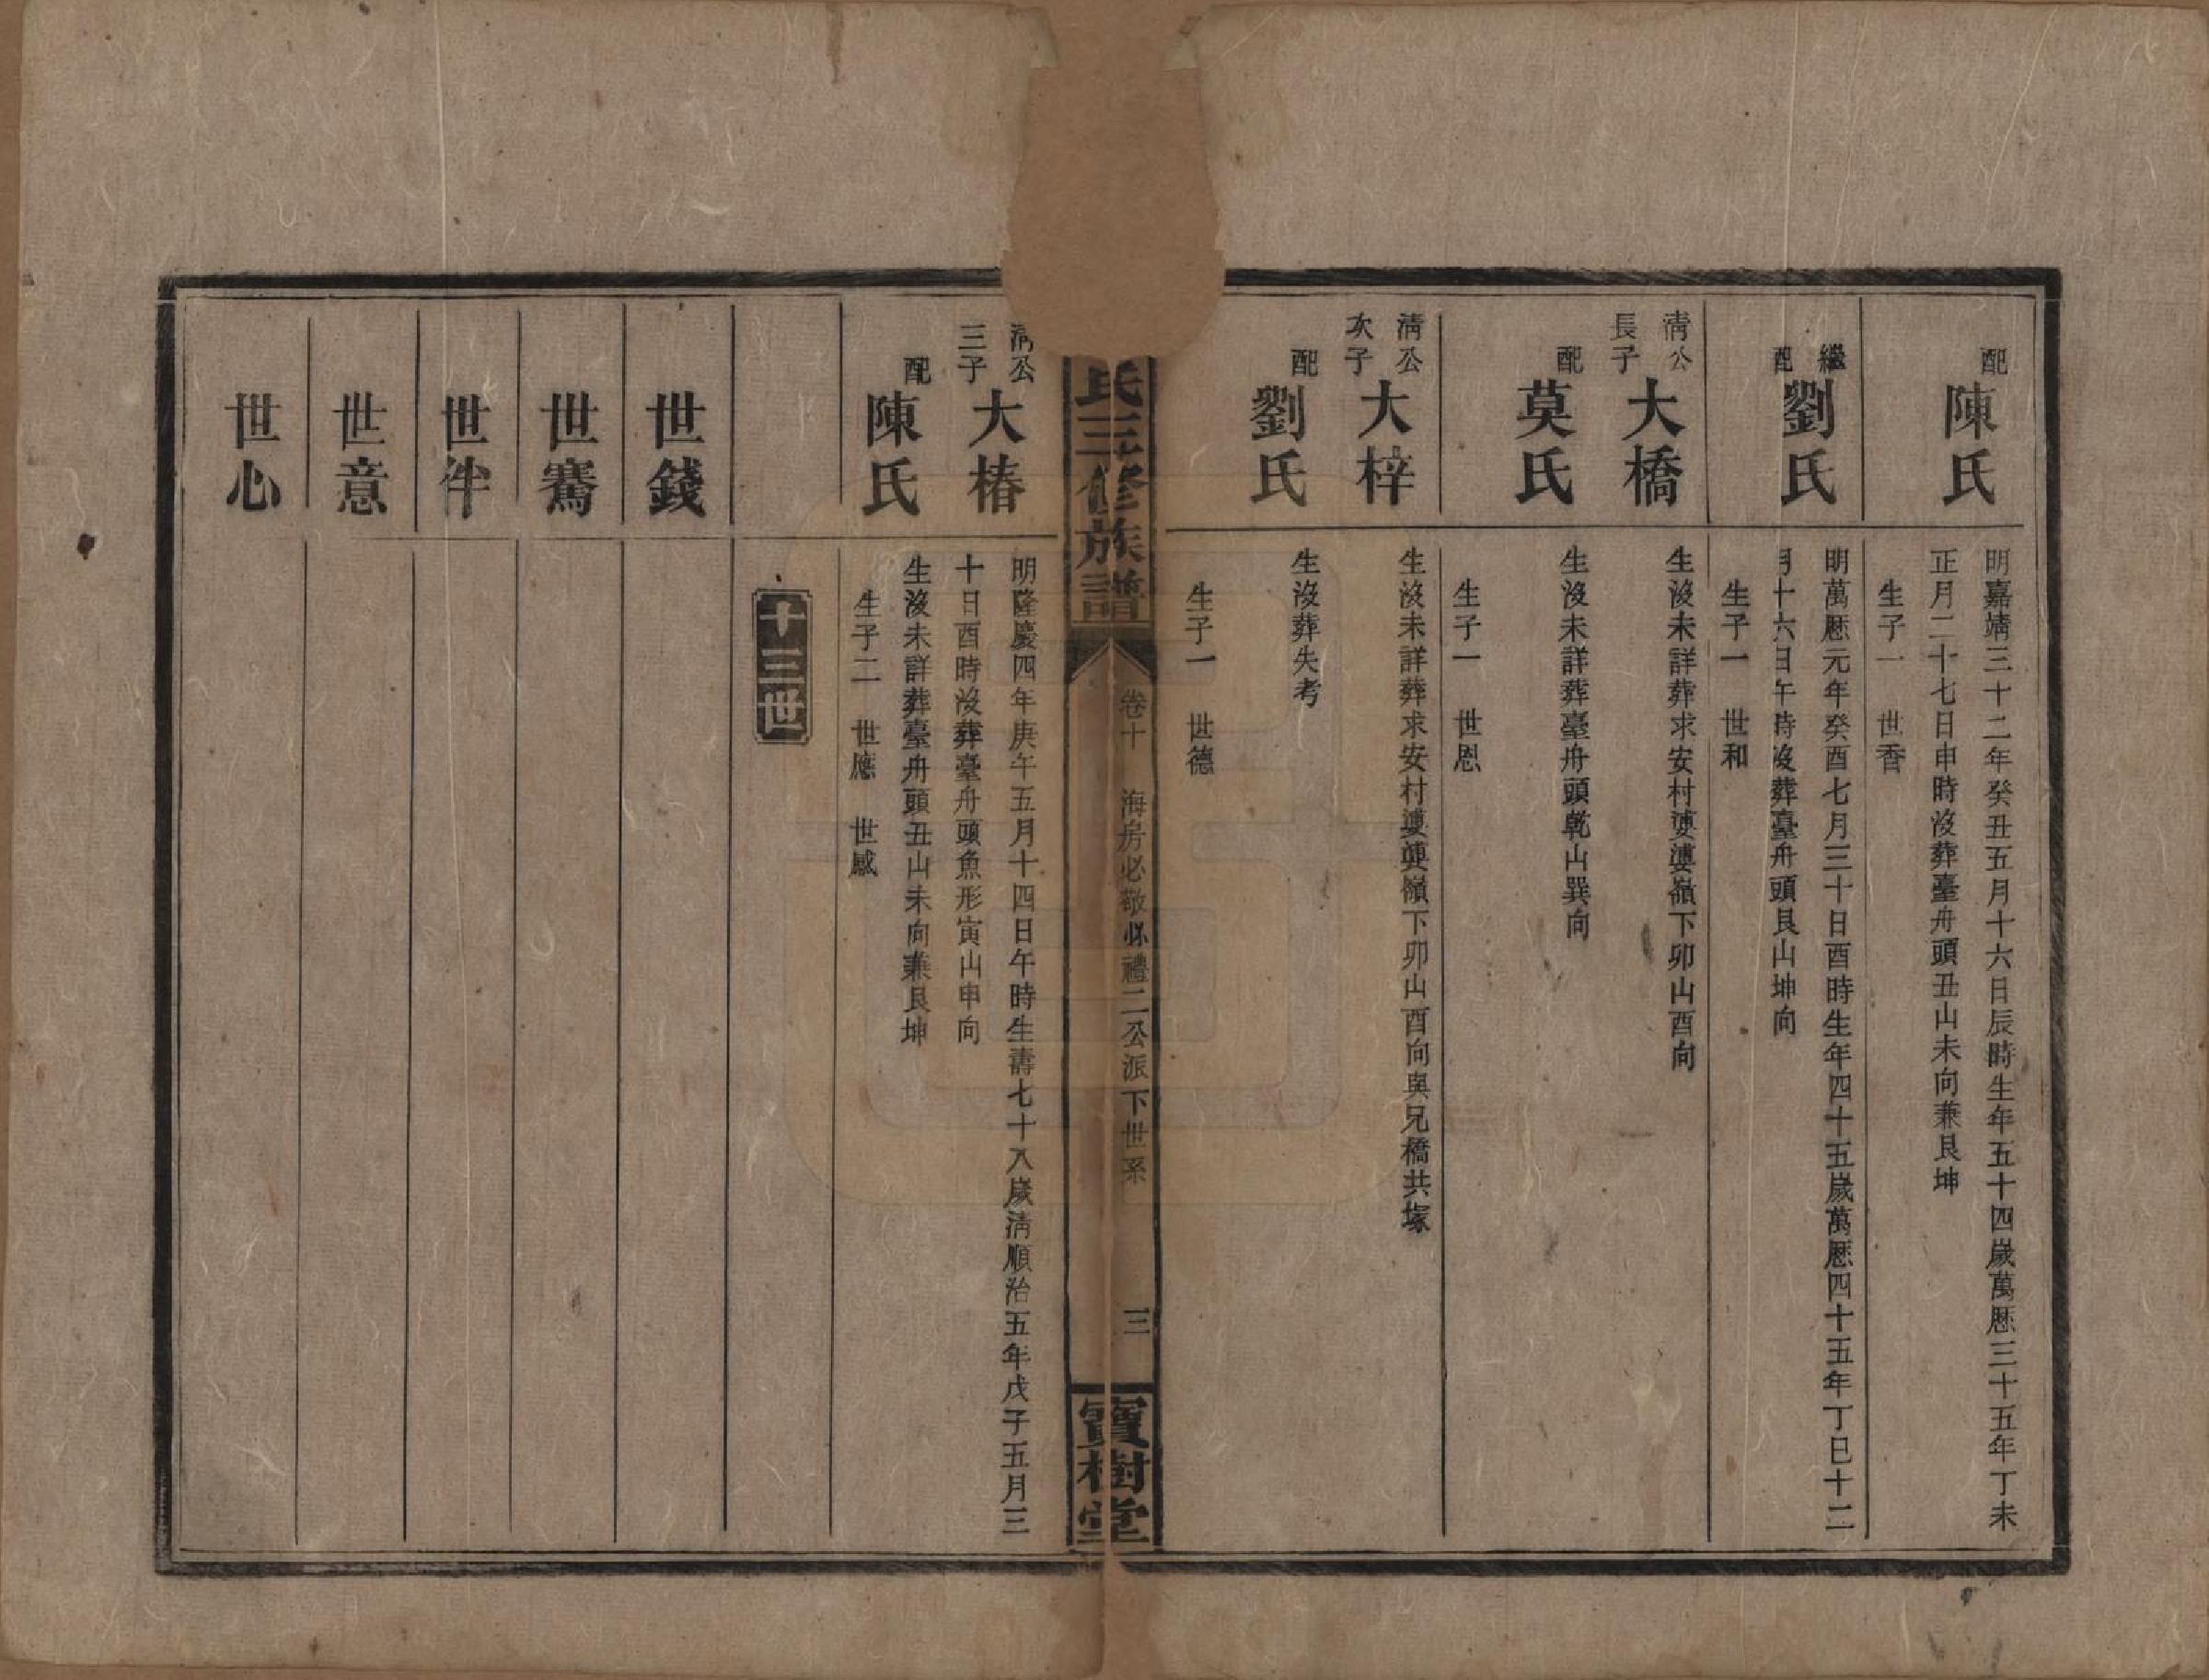 配陳氏
明嘉靖三十二年癸丑五月十六日辰時生年五十四歲萬厯三十五年丁未
正月二十七日申時沒葬臺舟頭丑山未向兼艮坤
生子一　世香
繼配劉氏
明萬厯元年癸酉七月三十日酉時生年四十五歲萬厯四十五年丁巳十二
月十六日午時沒葬臺舟頭艮山坤向
生子一　世和
淸公長子大橋
生沒未詳葬求安村婆婆嶺下卯山酉向
配莫氏
生沒未詳葬臺舟頭乾山巽向
生子一　世恩
淸公次子大梓
生沒未詳葬求安村婆婆嶺下卯山酉向與兄橋共塚
配劉氏
生沒葬失考
生子一　世德
氏三修族譜
卷十　海房必敬必禮二公派下世系
三
寶樹堂
淸公三子大椿
明隆慶四年庚午五月十四日午時生壽七十八歲淸順治五年戊子五月三
十日酉時沒葬臺舟頭魚形寅山申向
配陳氏
生沒未詳葬臺舟頭丑山未向兼艮坤
生子二　世應　世感
十三世
世錢
世騫
世伴
世意
世心